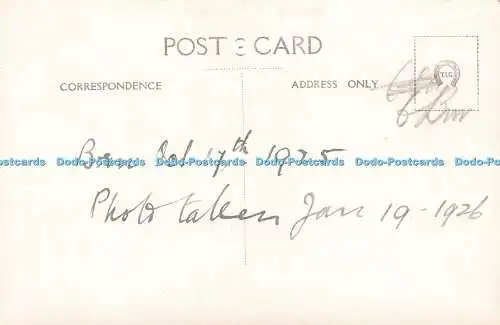 POST CARD
CORRESPONDENCE
ADDRESS ONLY
T.I.C.
Born Oct 17th 1925
Dodo-Postcards Dodo-Postcards Dodo-Postcards Dodo-Postcards Dodo-Postcards Dodo-Postcards
Photo taken Jan 19-1926